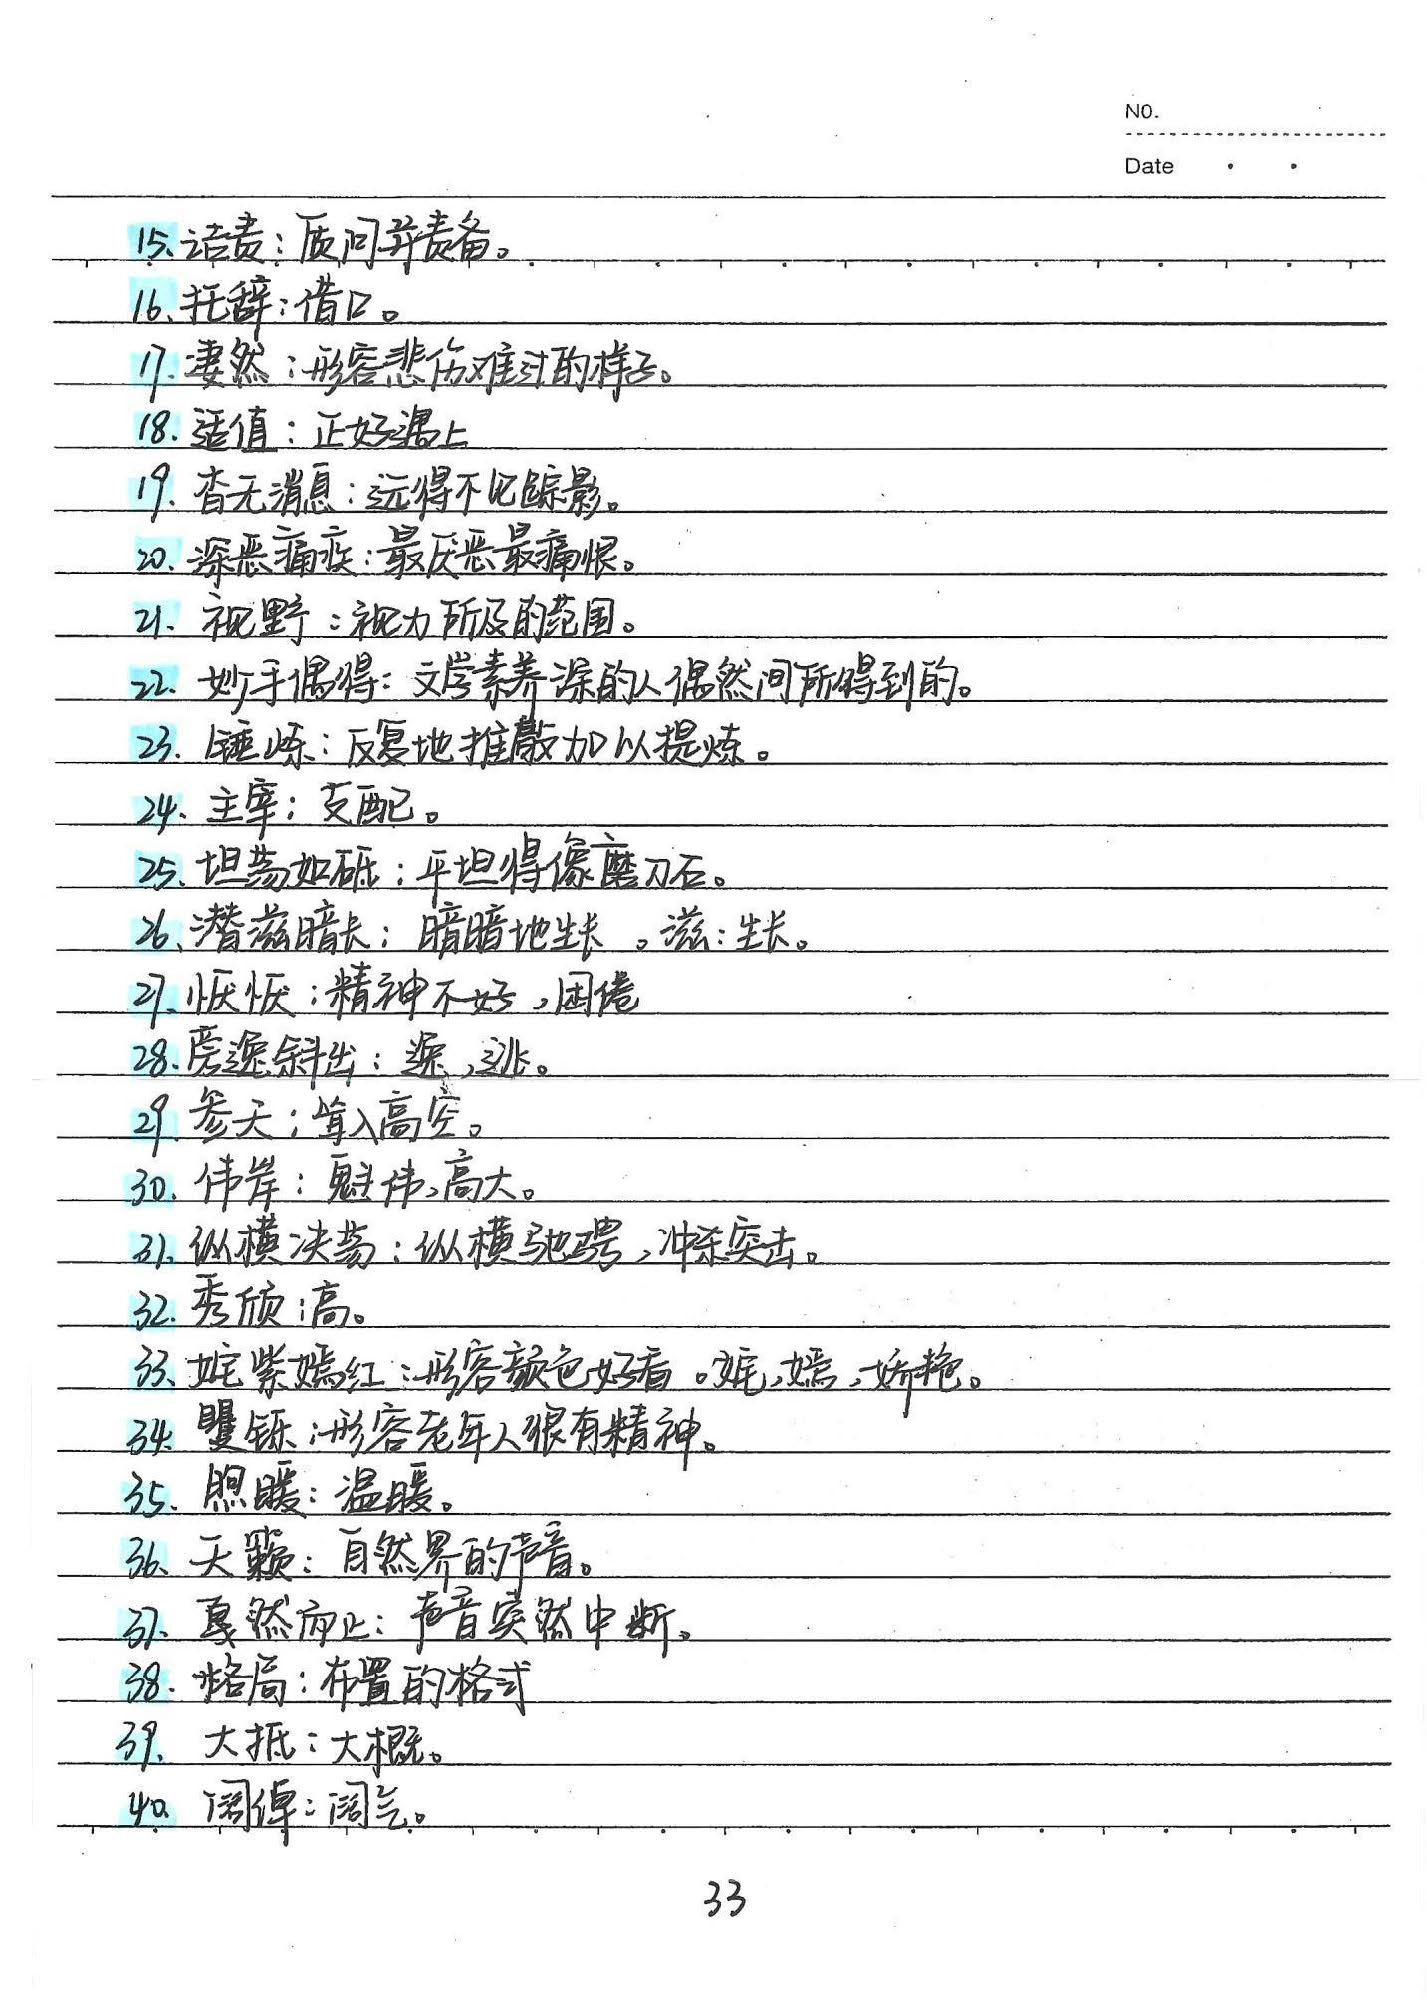 NO.
Date
15、诘责：质问并责备。
16、托辞：借口。
17、凄然：形容悲伤难过的样子。
18、适值：正好遇上
19、杳无消息：远得不见踪影。
20、深恶痛疾：最厌恶最痛恨。
21、视野：视力所及的范围。
22、妙手偶得：文学素养深的人偶然间所得到的。
23、锤炼：反复地推敲加以提炼。
24、主宰：支配。
25、坦荡如砥：平坦得像磨刀石。
26、潜滋暗长：暗暗地生长。滋：生长。
27、恹恹：精神不好，困倦
28、旁逸斜出：逸，逃。
29、参天：耸入高空。
30、伟岸：魁伟，高大。
31、纵横决荡：纵横驰骋，冲杀突击。
32、秀颀：高。
33、姹紫嫣红：形容颜色好看。姹，嫣，娇艳。
34、矍铄：形容老年人很有精神。
35、煦暖：温暖。
36、天籁：自然界的声音。
37、戛然而止：声音突然中断。
38、格局：布置的格式
39、大抵：大概。
40、阔绰：阔气。
33